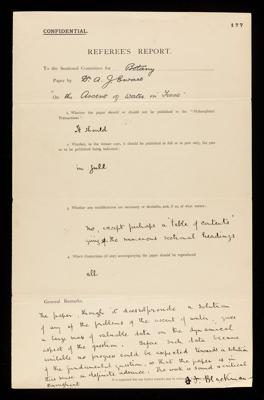 177
CONFIDENTIAL.
REFEREE'S REPORT.
To the Sectional Committee for Botany
Paper by Dr A. J. Ewart
"On the Ascent of Water in Trees"
1. Whether the paper should or should not be published in the "Philosophical
Transactions"
It should
2. Whether, in the former case, it should be published in full or in part only, the part
or to be published being indicated:
in full
3. Whether any modifications are necessary or desirable, and, if so, of what nature:
No, except perhaps a "table of contents"
giving the numerous sectional headings
4. Which illustrations (if any) accompanying the paper should be reproduced
all
General Remarks.
The paper though it does not provide a solution
of any of the problems of the ascent of water, gives
a large mass of valuable data on the dynamical
aspect of the question. Before such data became
available no progress could be expected towards a solution
of the fundamental question, so that the paper is in
this sense a definite advance. The work is sound & critical
throughout
F. F. Blackman